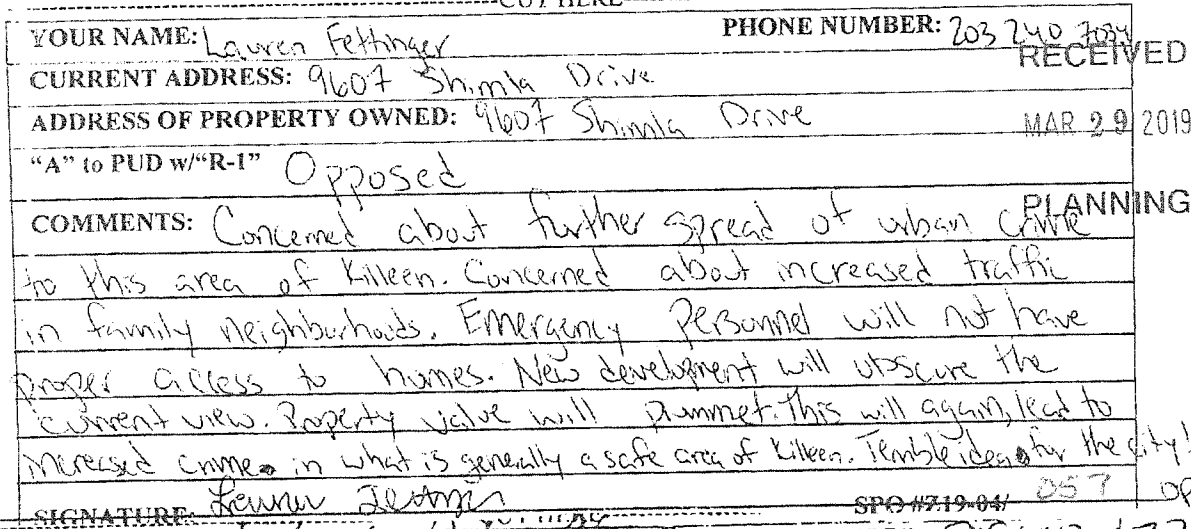 CUT HERE
YOUR NAME: Lauren Fettinger PHONE NUMBER: 203 240 7034
RECEIVED
CURRENT ADDRESS: 9607 Shimla Drive
ADDRESS OF PROPERTY OWNED: 9607 Shimla Drive
MAR 29 2019
"A" to PUD w/"R-1" Opposed
PLANNING
COMMENTS: Concerned about further spread of urban crime
to this area of Killeen. Concerned about increased traffic
in family neighborhoods. Emergency Personnel will not have
proper access to homes. New development will obscure the
current view. Property value will plummet. This will again, lead to
increased crime in what is generally a safe area of Killeen. Terrible idea for the city!
SIGNATURE: SPO #Z19-04/ 057